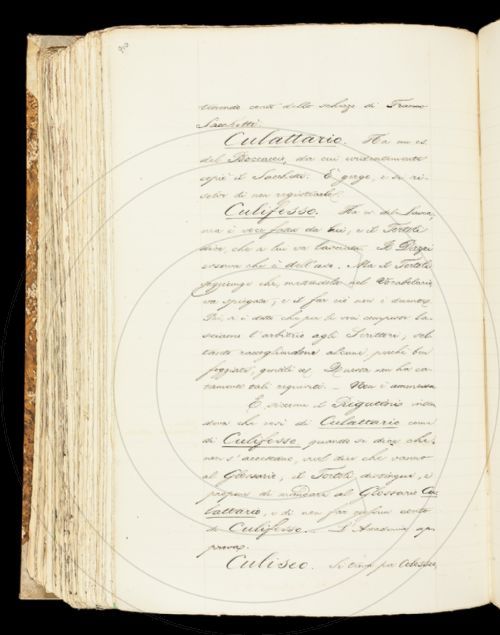 tenendo conto dello scherzo di Franco
Sacchetti.
Culattario. Ha un es.
del Boccaccio, da cui evidentemente
copiò il Sacchetti. È gergo, e si ri-
solve di non registrarlo.
Culifesso. Ha es. del
è voce da lui, e il Tortoli
dice, che a lui va lasciata. Il
osserva che è dell'uso. Ma il Tortoli
soggiunge che, mettendolo nel Vocabolario
va spiegato, e il far ciò non è
Poi, si è detto che per le voci composte la-
sciamo l'arbitrio agli Scrittori, sol-
tanto raccogliendone alcune, perché ben
foggiate, gentili ec. Questa non ha cer-
tamente tali requisiti. — Non è ammessa
E siccome il
dova che così di Culattario come
di Culifesso quando si dice che
non s'accettano, vuol dire che vanno
al Glossario, il Tortoli distingue, e
propone di mandare al Glossario Cu-
lattario, e di non far
di Culifesso. — L'Accademia ap-
prova.
Culiseo. Si tira per Colosseo,